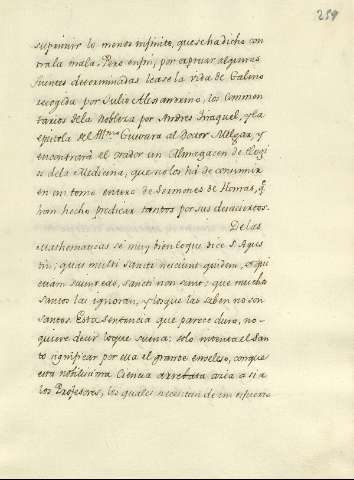 259
suprimir lo menos infinito, que se ha dicho con
tra la mala. Pero en fin, por captuar algunas
fuentes determinadas lease la vida de Galeno
recogida por Julio Alexandrino, los Commen
tarios de la Nobleza por Andres Tiraquel, y la
epistola del Mtro. Guevara al Doctor Melgar, y
encontrará el orador un Almagacen de Elogi
os de la Medicina, que no los ha de consumir
en un tomo entero de Sermones de Honras, q.
han hecho predicar tantos por sus desaciertos.
De las
Mathematicas sé muy bien lo que dice S. Agus
tin; quia multi Sancti nesciunt quidem, et qui
etiam sciunt eas, sancti non sunt: que muchos
santos las ignoran, y los que las saben no son
santos. Esta sentencia que parece dura, no
quiere decir lo que suena: solo intenta el San
to significar por ella el grande embeleso, con que
esta nobilissima Ciencia arrebata acia a si a
los Profesores, los quales necesitan de un esfuerzo